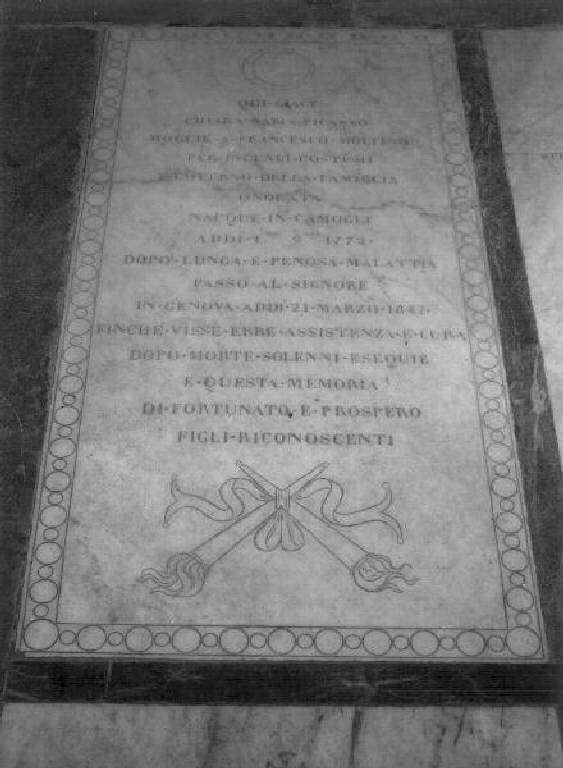 QUI·GIACE
CHIARA·MARIA·FICASSO
MOGLIE·A·FRANCESCO
PER·INGENUI·COSTUMI
E·GOVERNO·DELLA·FAMIGLIA
ONORATA
NACQUE·IN·CAMOGLI
ADDI·1 9 1772·
DOPO·LUNGA·E·PENOSA·MALATTIA
PASSO·AL·SIGNORE
IN·GENOVA·ADDI·21·MARZO·1847·
FINCHE·VISSE·EBBE·ASSISTENZA·E·CURA
DOPO·MORTE·SOLENNI·ESEQUIE
E·QUESTA·MEMORIA
DI·FORTUNATO·E·PROSPERO
FIGLI·RICONOSCENTI